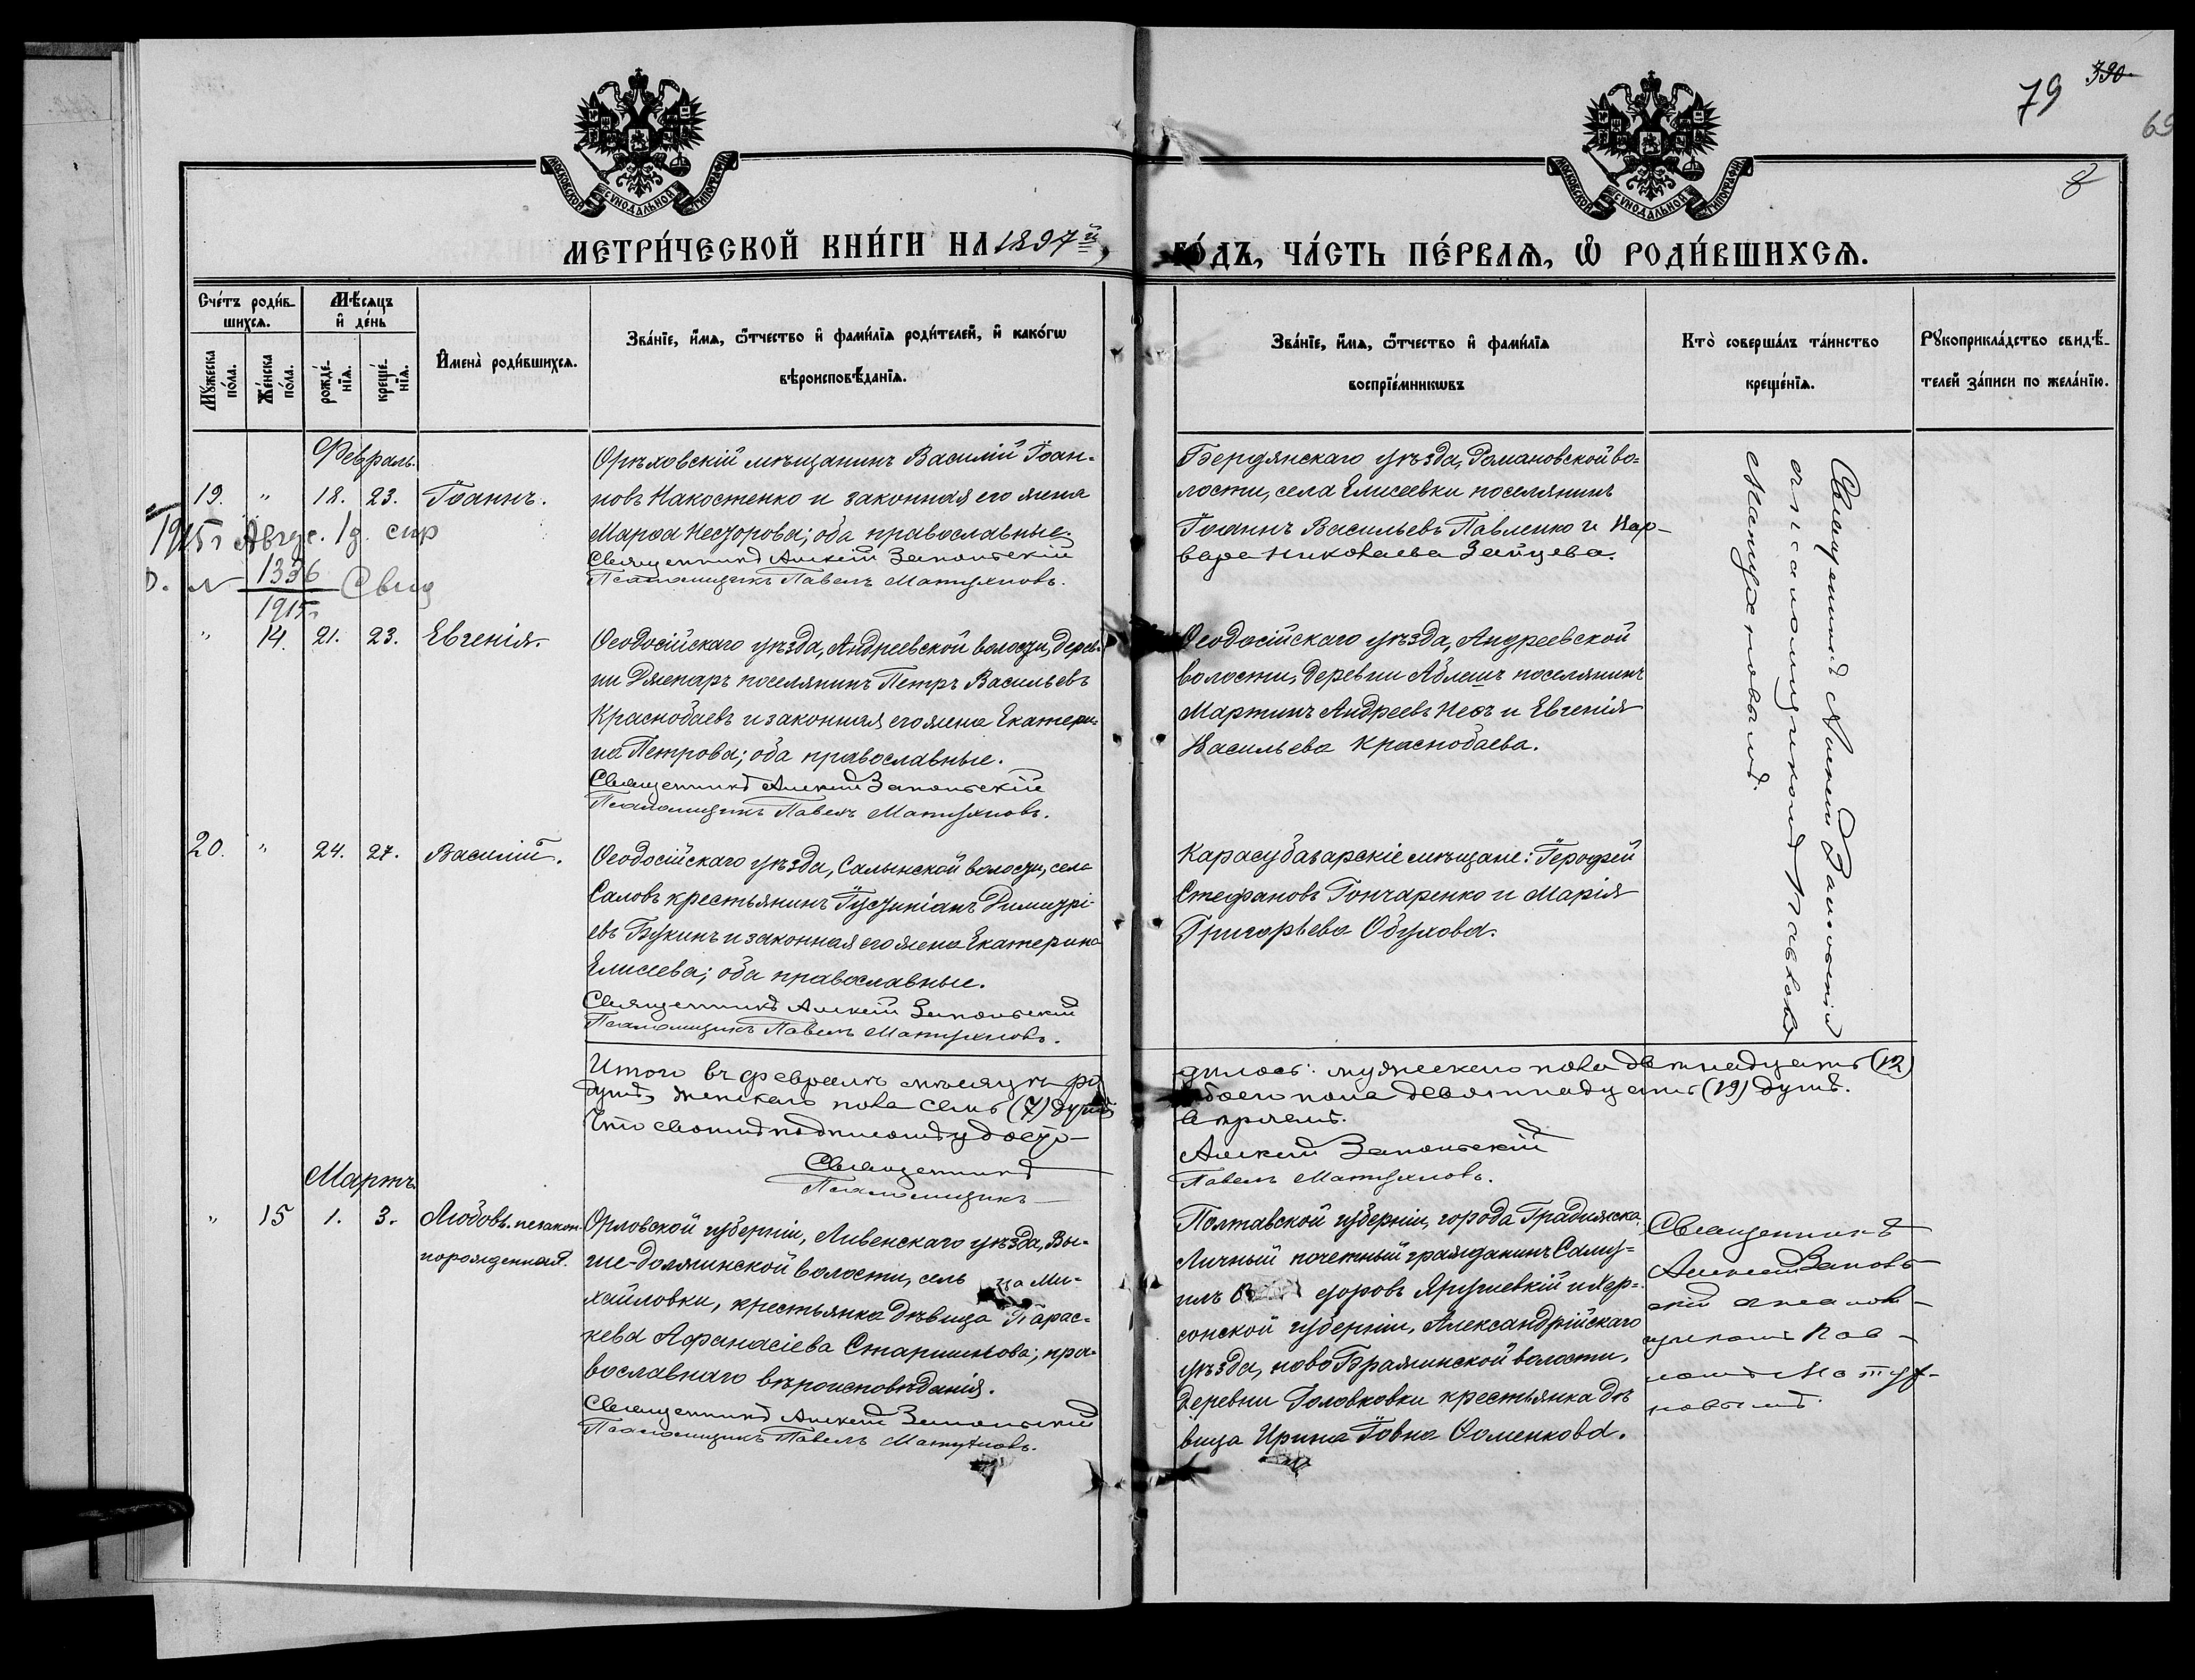 79 390
69
8
МОСКОВСКОЙ СѴНОДАЛЬНОЙ ТИПОГРАФІИ
МОСКОВСКОЙ СѴНОДАЛЬНОЙ ТИПОГРАФІИ
МЕТРИ́ЧЕСКОЙ КНИ́ГИ НА 1897й,
ГО́ДЪ, ЧА́СТЬ ПЕ́РВАѦ, Ѡ РОДИ́ВШИХСѦ.
Сче́тъ роди́в-
шихсѧ.
Мѣ́сяцъ
и҆ де́нь
Мꙋжеска по́ла.
Же́нска по́ла.
рожде́нїѧ.
креще́нїѧ.
И҆мена̀ роди́вшихсѧ.
Зва́нїе, и҆́мѧ, ѻ҆́тчество и҆ фами́лїѧ роди́телей, и҆ како́гѡ
вѣроисповѣ́данїѧ.
Зва́нїе, и҆́мѧ, ѻ҆́тчество и҆ фами́лїѧ
воспрїе́мникѡвъ
Кто̀ соверша́лъ та́инство
креще́нїѧ.
Рꙋкоприкла́дство свидѣ́-
телей за́писи по жела́нїю.
Февраль.
19. " 18. 23. Іоаннъ.
Орѣховскій мѣщанинъ Василій Іоан-
новъ Накостенко и законная его жена
Марѳа Несторова; оба православные.
Священникъ Алексій Запольскій
Псаломщикъ Павелъ Матухновъ.
Бердянскаго уѣзда, Романовской во-
лости, села Елисеевки поселянинъ
Іоаннъ Васильевъ Павленко и Вар-
вара Николаева Зайцева.
1915 г Авгус. 1д. спр
№ 1336
1915 г. Свид
Священникъ Алексій Запольскій
съ псаломщикомъ Павломъ
Матухновымъ.
" 14. 21. 23. Евгенія.
Ѳеодосійскаго уѣзда, Андреевской волости, дерев-
ни Джепаръ поселянинъ Петръ Васильевъ
Краснобаевъ и законная его жена Екатери-
на Петрова; оба православные.
Священникъ Алексій Запольскій
Псаломщикъ Павелъ Матухновъ.
Ѳеодосійскаго уѣзда, Андреевской
волости, деревни Аблешъ поселянинъ
Мартинъ Андреевъ и Евгенія
Васильева Краснобаева.
20. " 24. 27. Василій.
Ѳеодосійскаго уѣзда, Салынской волости, села
Саловъ крестьянинъ Іустиніанъ Димитрі-
евъ Букинъ и законная его жена Екатерина
Елисеева; оба православные.
Священникъ Алексій Запольскій
Псаломщикъ Павелъ Матухновъ.
Карасубазарскіе мѣщане: Іерофей
Стефановъ Гончаренко и Марія
Григорьева Обухова.
Итого въ февралѣ мѣсяцѣ ро
дилось: мужескаго пола двѣнадцать (12)
душъ, женскаго пола семь (7) душъ
обоего пола девятнадцать (19) душъ.
Что своимъ подписомъ удосто-
вѣряемъ.
Священникъ Алексій Запольскій
Псаломщикъ Павелъ Матухновъ.
Мартъ
" 15 1. 3. Любовь. незакон-
норожденная.
Орловской губерніи, Ливенскаго уѣзда, Вы-
ше-должинской волости, сель ца Ми-
хайловки, крестьянка дѣвица Парас-
кева Аѳанасіева Старшикова; пра-
вославнаго вѣроисповѣданія.
Священникъ Алексій Запольскій
Псаломщикъ Павелъ Матухновъ.
Полтавской губерніи, города Градижска
Личный почетный гражданинъ Саму-
илъ доровъ и Хер-
сонской губерніи, Александрійскаго
уѣзда, ново Бражинской волости,
деревни Головковки крестьянка дѣ
вица Ирина Іовна Ѳоменкова.
Священникъ
Алексій Заполь-
скій съ псалом-
щикомъ Пав-
ломъ Матух-
новымъ.